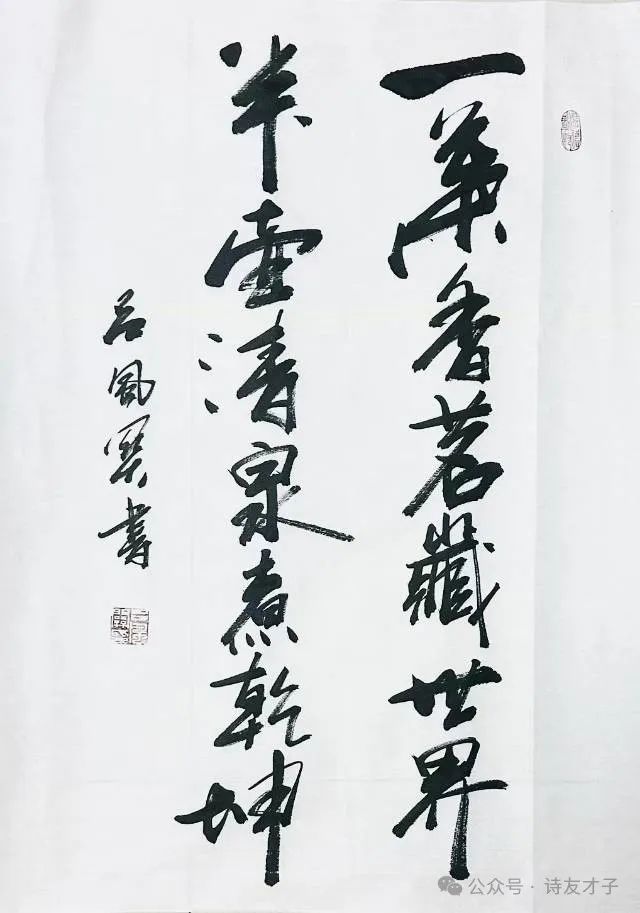 一叶香茗藏世界
半壶清泉煮乾坤
吕风云书
公众号·诗友才子